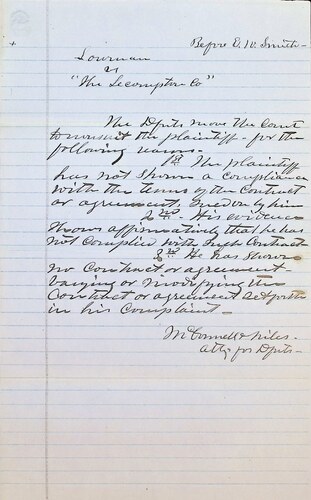 Before E. W. Smith -
Lowman
vs
"The Lecompton Co"
The Dfts move the Court
to nonsuit the plaintiff - for the
following reasons -
1st The plaintiff
has not shown a compliance
with the terms of the Contract
or agreement, sued on by him
2nd - His evidence
shows affirmatively that he has
not complied with such Contract
3rd He has shown
no Contract or agreement
varying or modifying the
Contract or agreement set forth
in his Complaint -
McConnell & Niles -
Attys for Dfts -